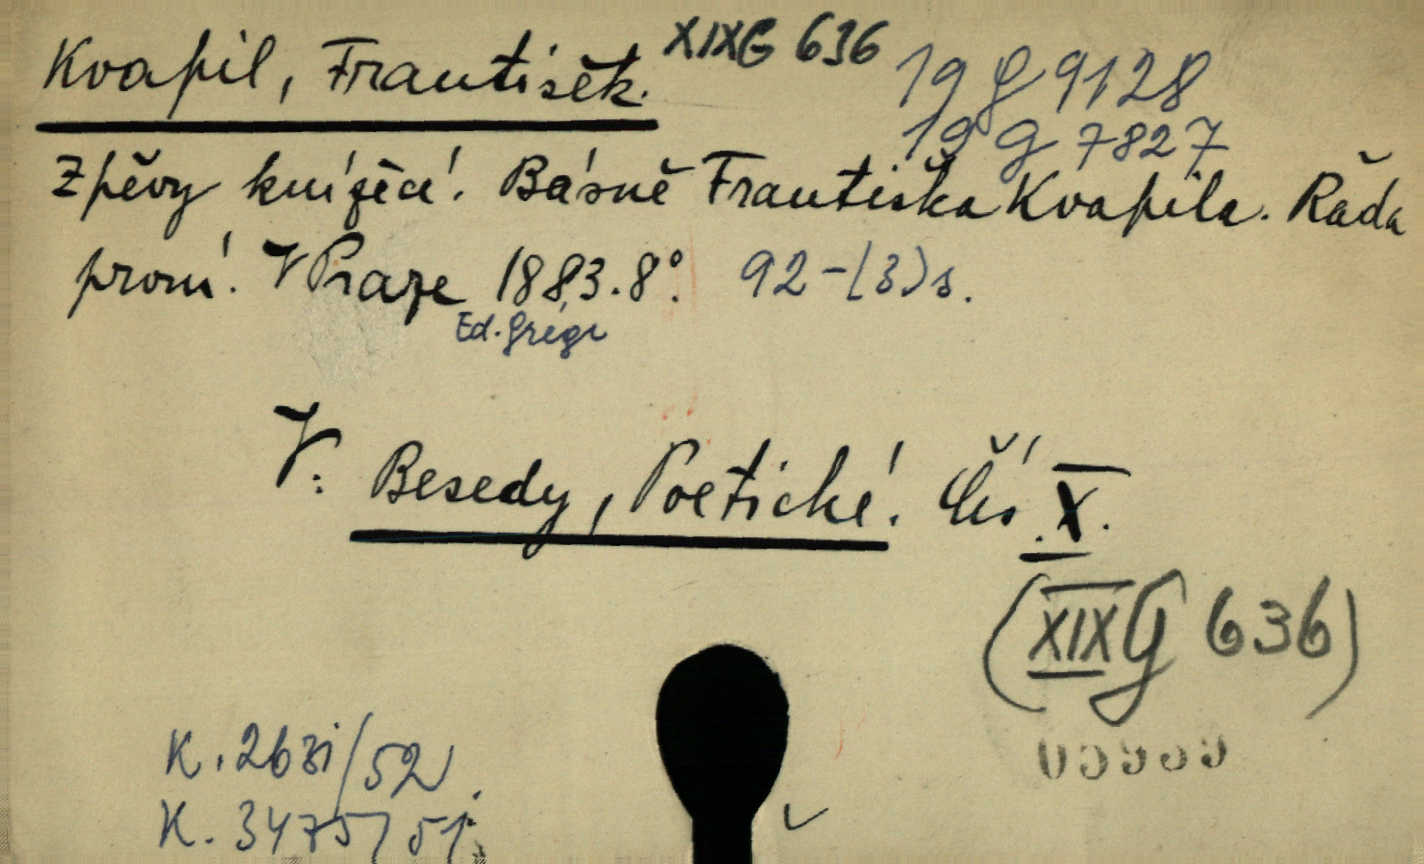 Kvapil, František. XIX G 636
19 g 9128
19 g 7827
Zpěvy knížecí. Básně Františka Kvapila. Řada
první. V Praze 1883. 8°. 92-(3) s.
Ed. Grégr
V: Besedy, Poetické. Čís. X.
(XIX G 636)
K. 2631/52.
K. 3475/51.